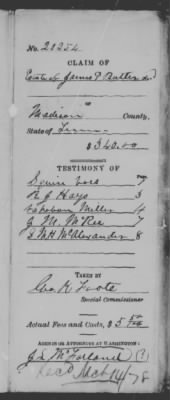 No. 20254
CLAIM OF
Estate James P Butler
Madison County,
State of Tenn
$340.00
TESTIMONY OF
Squire 7
R J Hays 3
Miller 4
G. M. McRee 7
J M H McAlexander 8
TAKEN BY
Geo. R. Foote
Special Commissioner
Actual Fees and Costs, $5
AGENTS OR ATTORNEYS AT WASHINGTON:
G L McFarland
Rec'd Mch 14/78